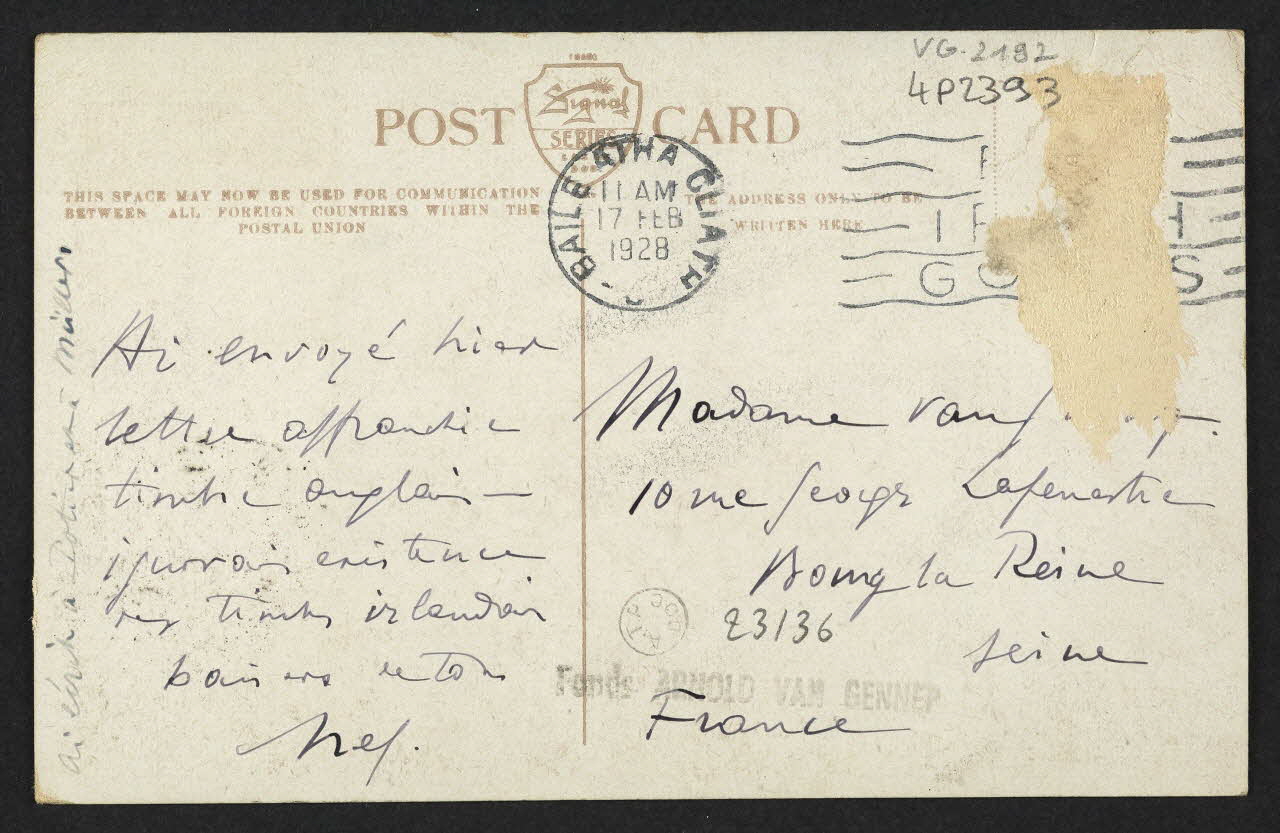 VG-2192
4P2393
POST CARD
Signal
SERIES
THIS SPACE MAY NOW BE USED FOR COMMUNICATION
BETWEEN ALL FOREIGN COUNTRIES WITHIN THE
POSTAL UNION
THE ADDRESS ONLY TO BE
WRITTEN HERE
BAILE ATHA CLIATH
11 AM
17 FEB
1928
Ai envoyé hier
lettre affranchie
timbre anglais —
ignorais existence
des timbres irlandais
baisers de ton
Nef.
ai écrit à
Madame van
10 rue George Lafenestre
Bourg la Reine
Seine
France
DOC
ATP
23136
Fonds ARNOLD VAN GENNEP